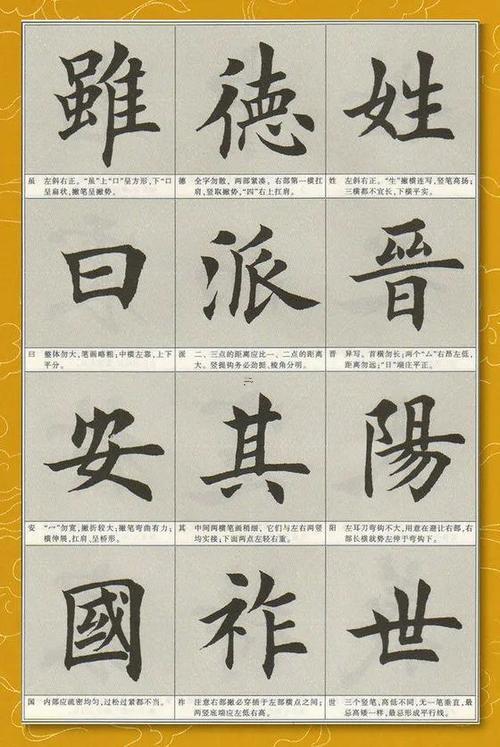 雖 德 姓
虽 左斜右正。“虽”上“口”呈方形，下“口
呈扁状，撇笔呈撇势。
德 全字勿散，两部紧凑。右部第一横扛
肩，竖取撇势，“四”右上扛肩。
姓 左斜右正。“生”撇横连写，竖笔高扬；
三横都不宜长，下横平实。
曰 派 晉
曰 整体勿大，笔画略粗；中横左靠，上下
平分。
派 二、三点的距离应比一、二点的距离
大。竖提钩务必劲挺，棱角分明。
晋 异写。首横勿长；两个“厶”右昂左低，
距离勿远；“日”端庄平正。
安 其 陽
安 “宀”勿宽，撇折较大；撇笔弯曲有力；
横伸展，扛肩，呈桥形。
其 中间两横笔画稍细，它们与左右两竖
均实接；下面两点左轻右重。
阳 左耳刀弯钩不大，用意在避让右部，右
部长横就势左伸于弯钩下。
國 祚 世
国 内部应疏密均匀，过松过紧都不当。
祚 注意右部撇必穿插于左部横点之间；
两竖底端应左低右高。
世 三个竖笔，高低不同，无一笔垂直，最
忌高矮一样，最忌形成平行线。